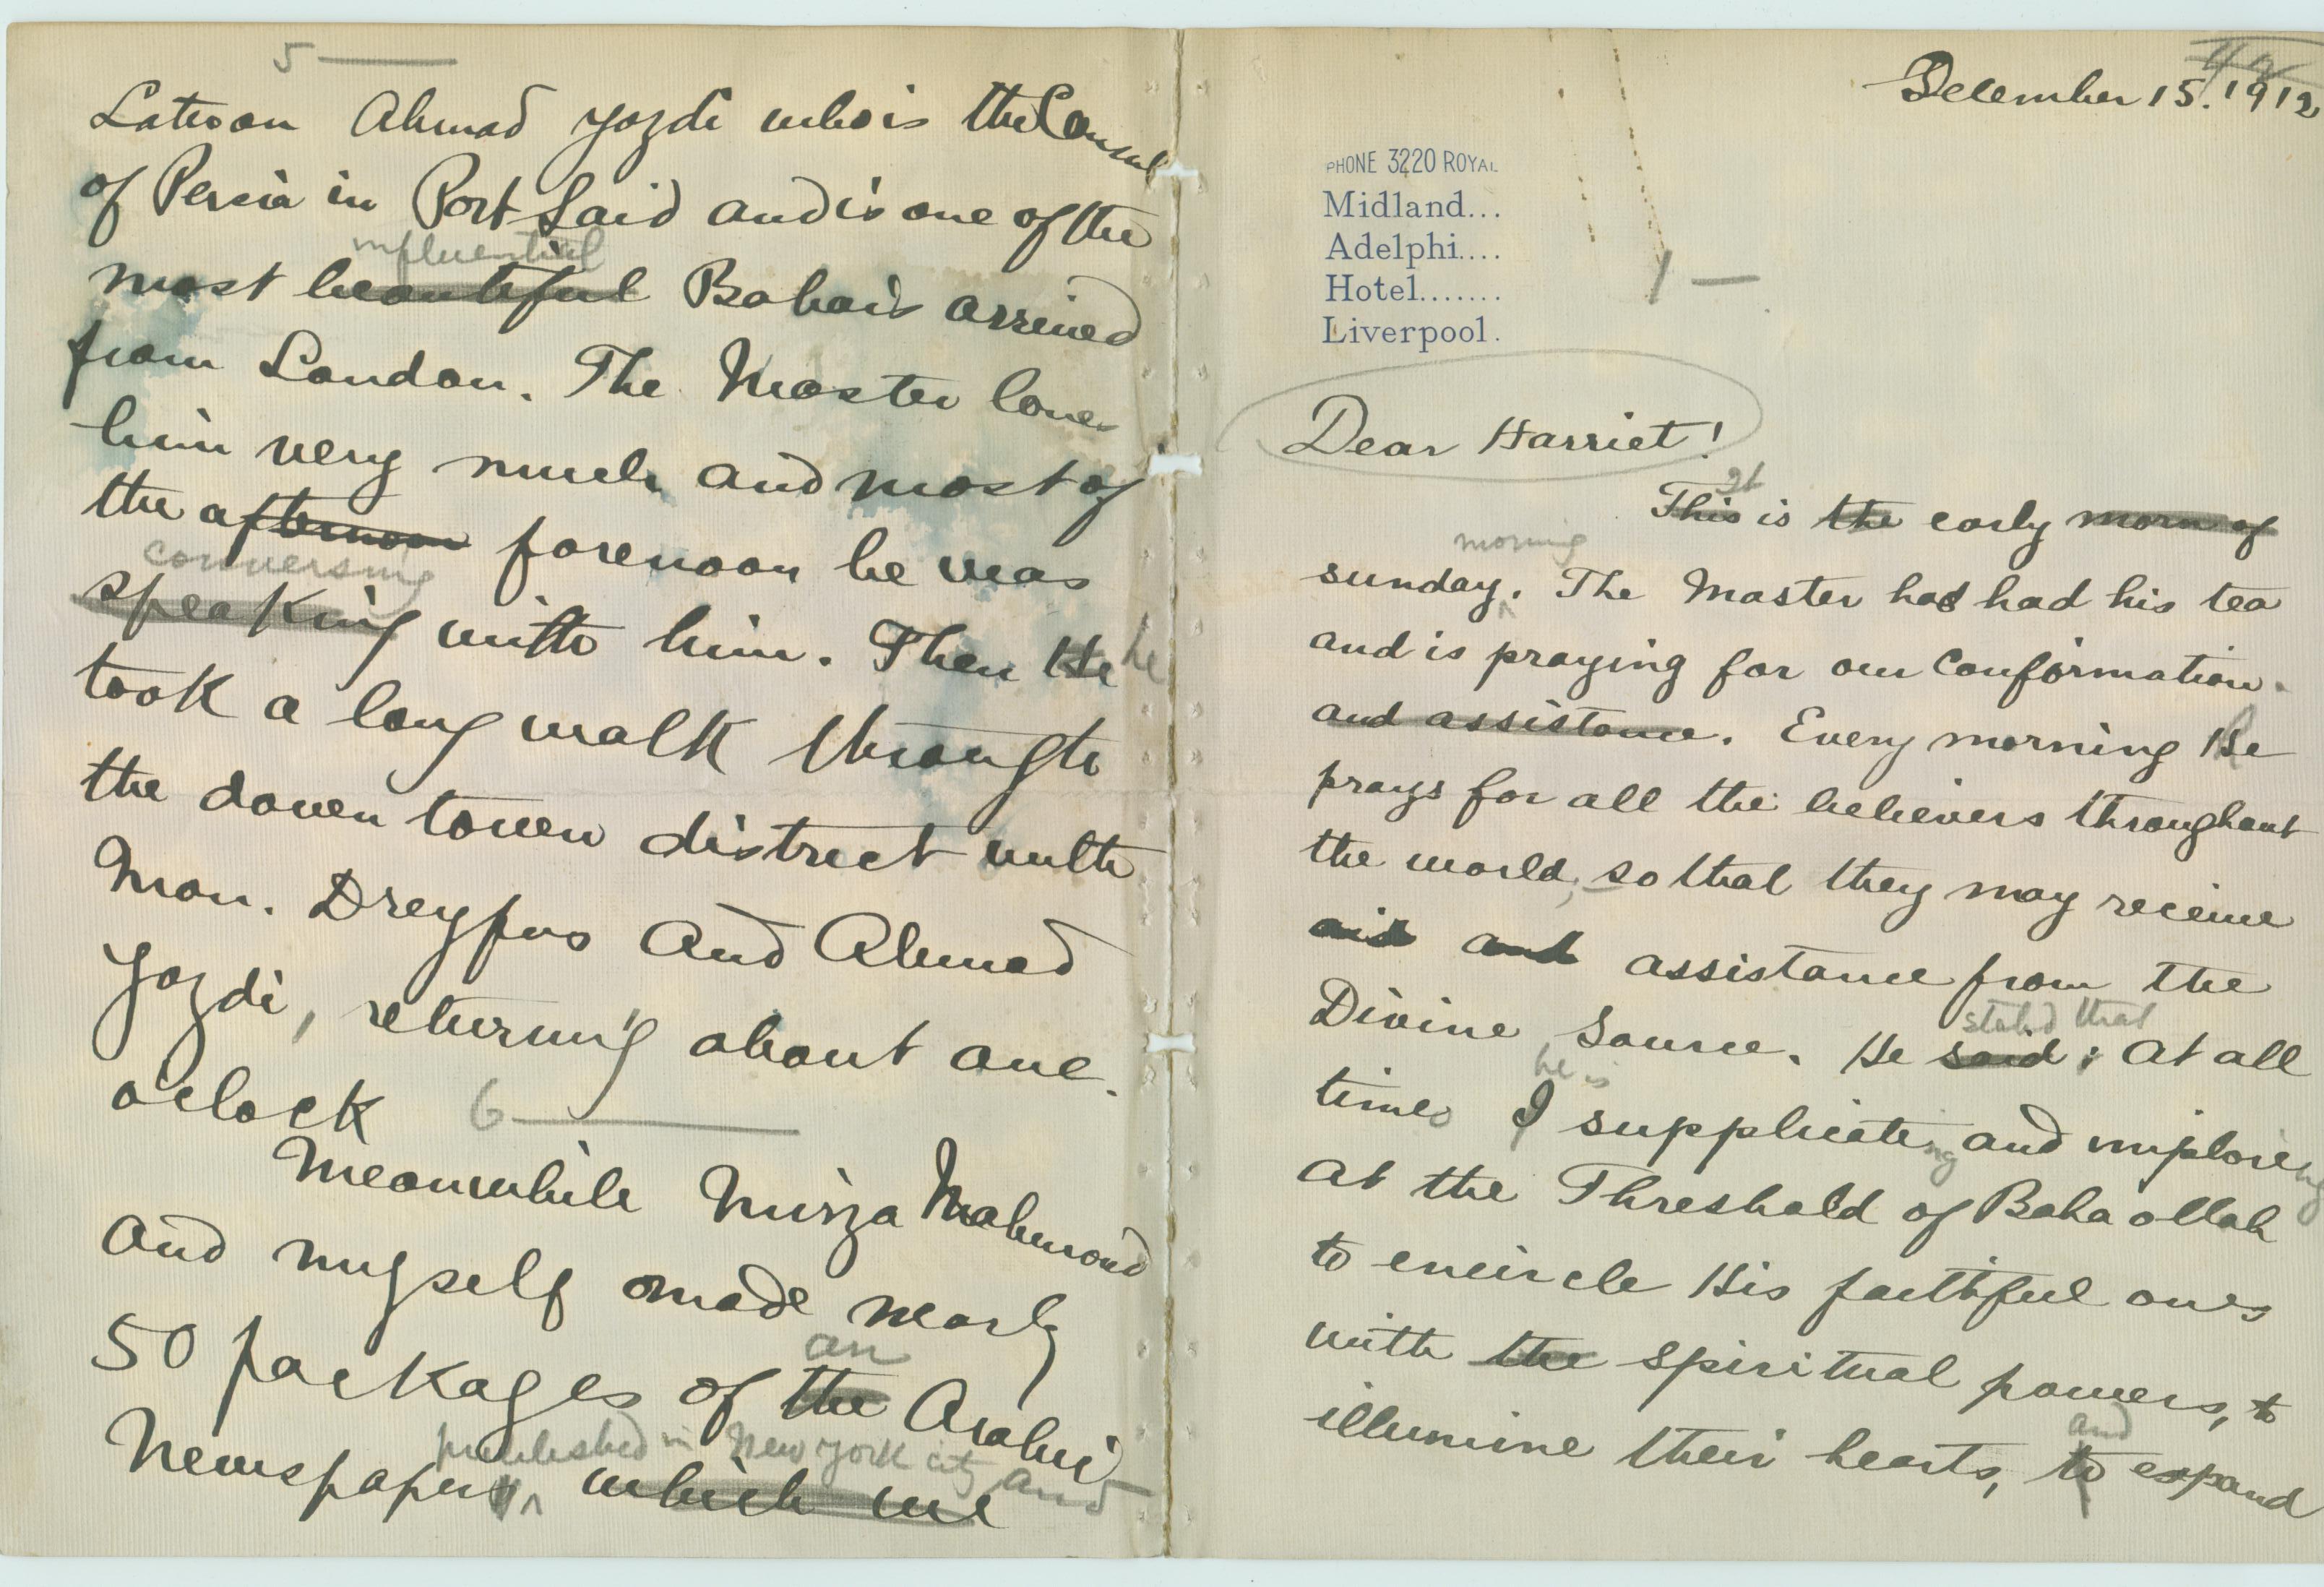 5
Later on Ahmad Yazdi who is the Consul
of Persia in Port Said and is one of the
influential
most beautiful Bahais arrived
from London. The Master loves
him very much and most of
the afternoon forenoon he was
conversing
speaking with him. Then He he
took a long walk through
the down town district with
Mon. Dreyfus and Ahmad
Yazdi, returning about one
o'clock 6
Meanwhile Mirza Mahmoud
and myself made nearly
an
50 packages of the Arabic
published in New York city and
Newspapers which we
44
December 15. 1912
PHONE 3220 ROYAL
Midland...
Adelphi....
Hotel.......
Liverpool.
1 —
Dear Harriet!
It
This is the early morn of
morning
sunday. The Master had had his tea
and is praying for our confirmation.
and assistance. Every morning He
prays for all the believers throughout
the world, so that they may receive
aid and assistance from the
stated that
Divine Source. He said: At all
he is
times I supplicating and imploreing
at the Threshold of Baha ollah
to encircle His faithful ones
with the spiritual powers, to
and
illumine their hearts, to expand